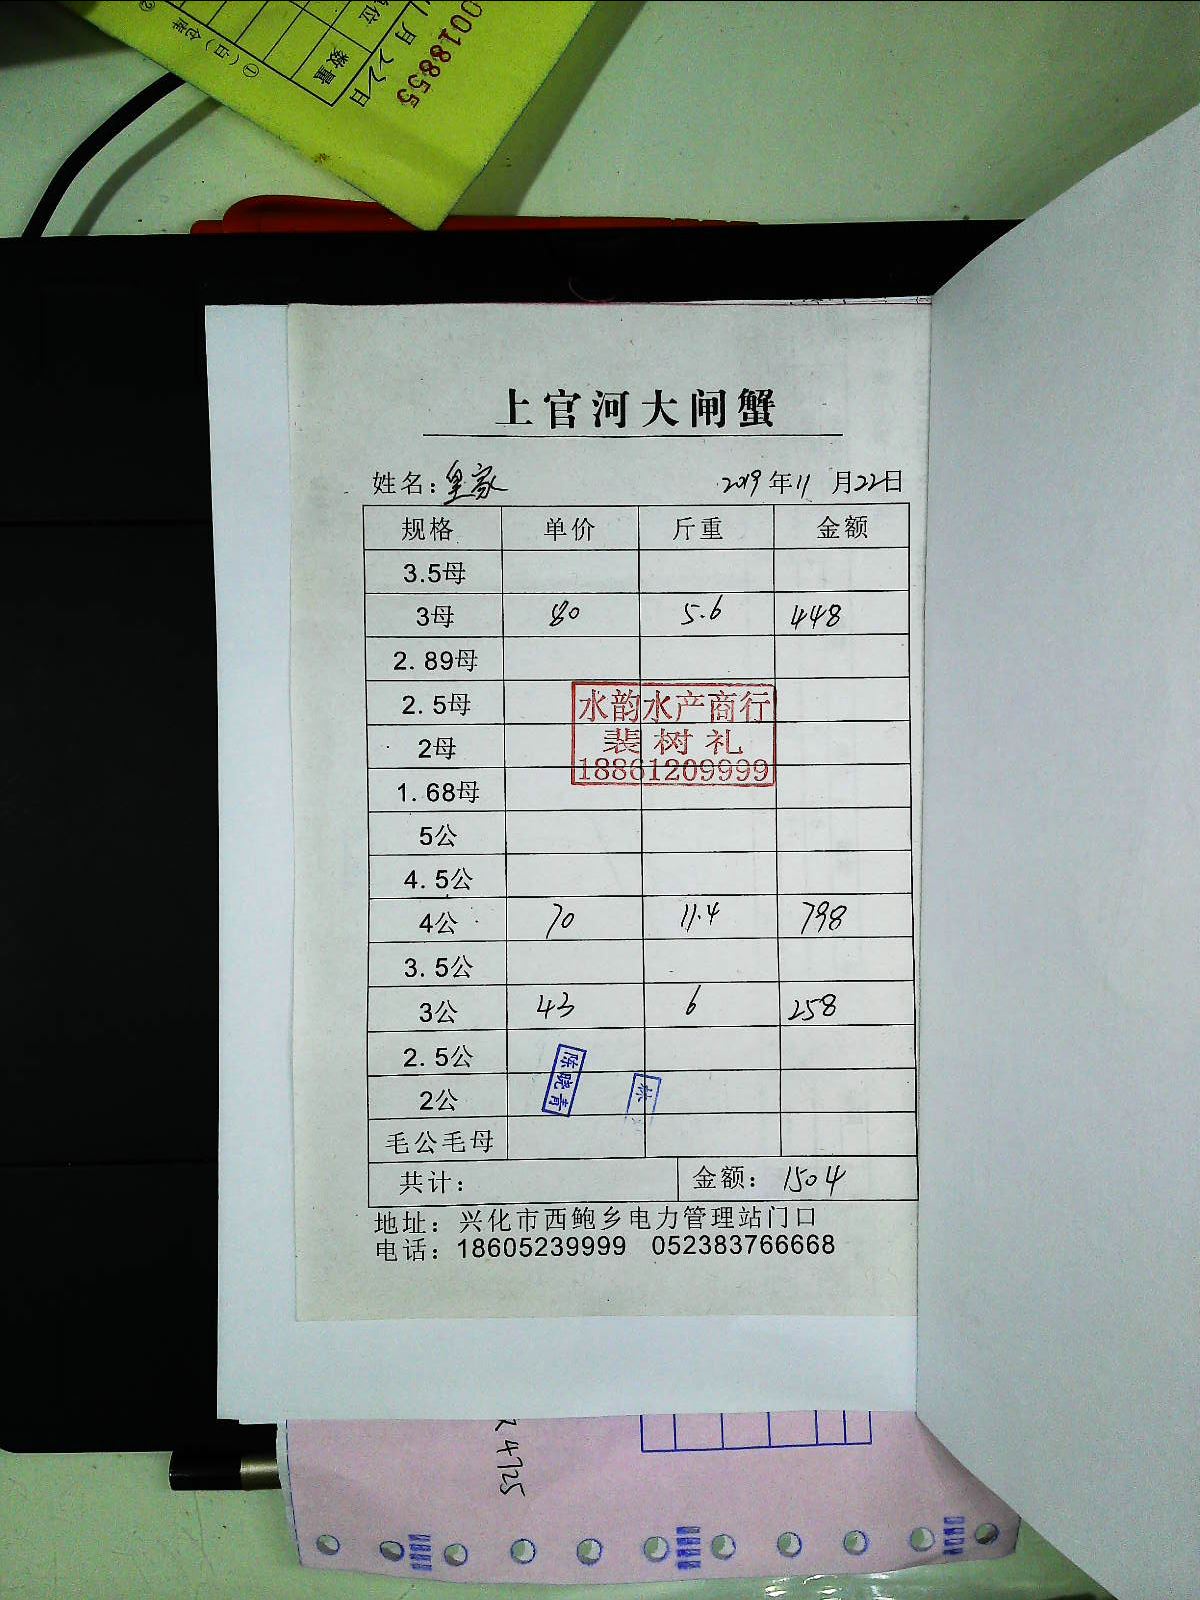 0018855
1月22日
单位
数量
① (白) 仓库
②
上官河大闸蟹
姓名：皇家 2019年11月22日
规格 单价 斤重 金额
3.5母
3母 80 5.6 448
2.89母
2.5母
2母
1.68母
水韵水产商行
裴树礼
18861209999
5公
4.5公
4公 70 11.4 798
3.5公
3公 43 6 258
2.5公
2公
陈晓青
林
毛公毛母
共计： 金额：1504
地址：兴化市西鲍乡电力管理站门口
电话：18605239999 052383766668
24725